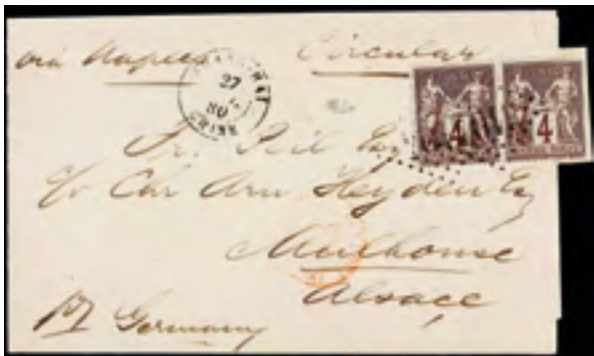 via Naples Circular
27
80
4 4
Fr. Peil Esq
c/o Chr Arn Heyden Esq
Mulhouse
Alsace
Germany